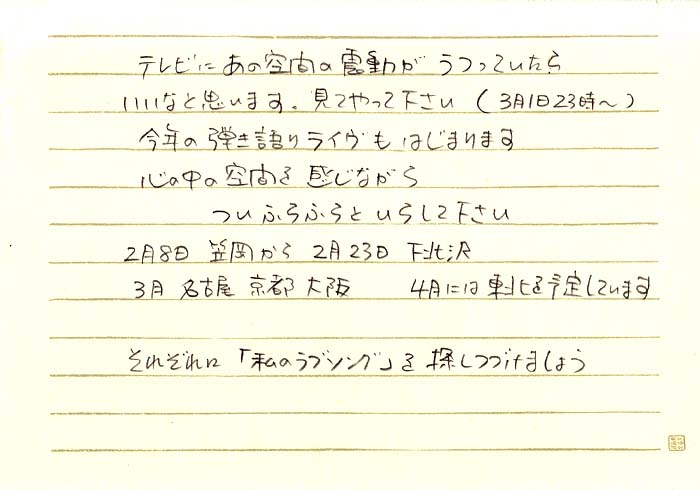 テレビにあの空間の震動がうつっていたら
いいなと思います。見てやって下さい(3月1日23時〜)
今年の弾き語りライヴもはじまります
心の中の空間を感じながら
ついふらふらといらして下さい
2月8日 笠岡から 2月23日 下北沢
3月 名古屋 京都 大阪 4月には東北を予定しています
それぞれに「私のラブソング」を探しつづけましょう